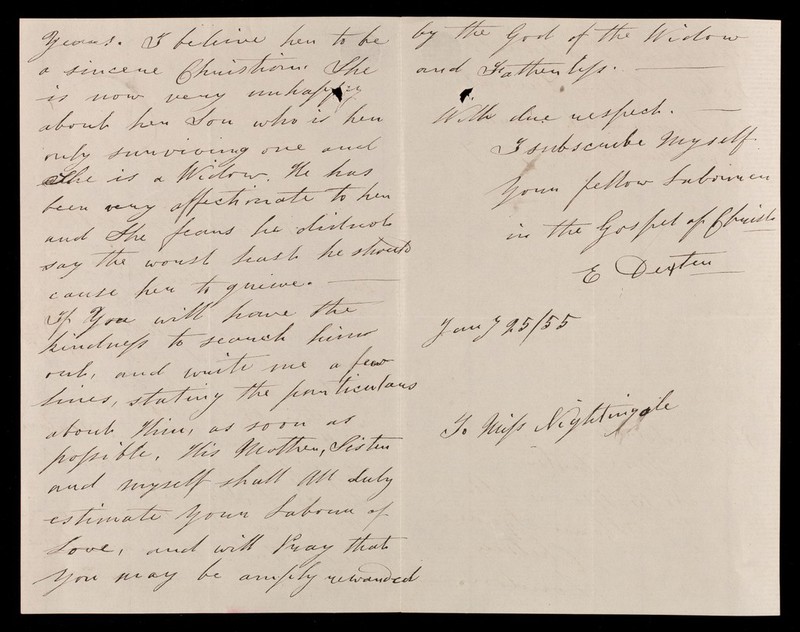 Years. I believe her to be
a sincere Christian. She
is now very unhappy
about her Son who is her
only surviving one and
She is a Widow. He has
been very affectionate to her
and She fears he did not
say the worst least he should
cause her to grieve.
If You will have the
kindness to search him
out, and write me a few
lines, stating the particulars
about Him, as soon as
possible, His Mother, Sister
and myself shall All duly
estimate Your Labour of
Love, and will Pray that
You may be amply rewarded
by the God of the Widow
and Fatherless.
With due respect.
I subscribe Myself
Your fellow Labourer
in the Gospel of Christ
E Dexter
Jany 25/55
To Miss Nightingale